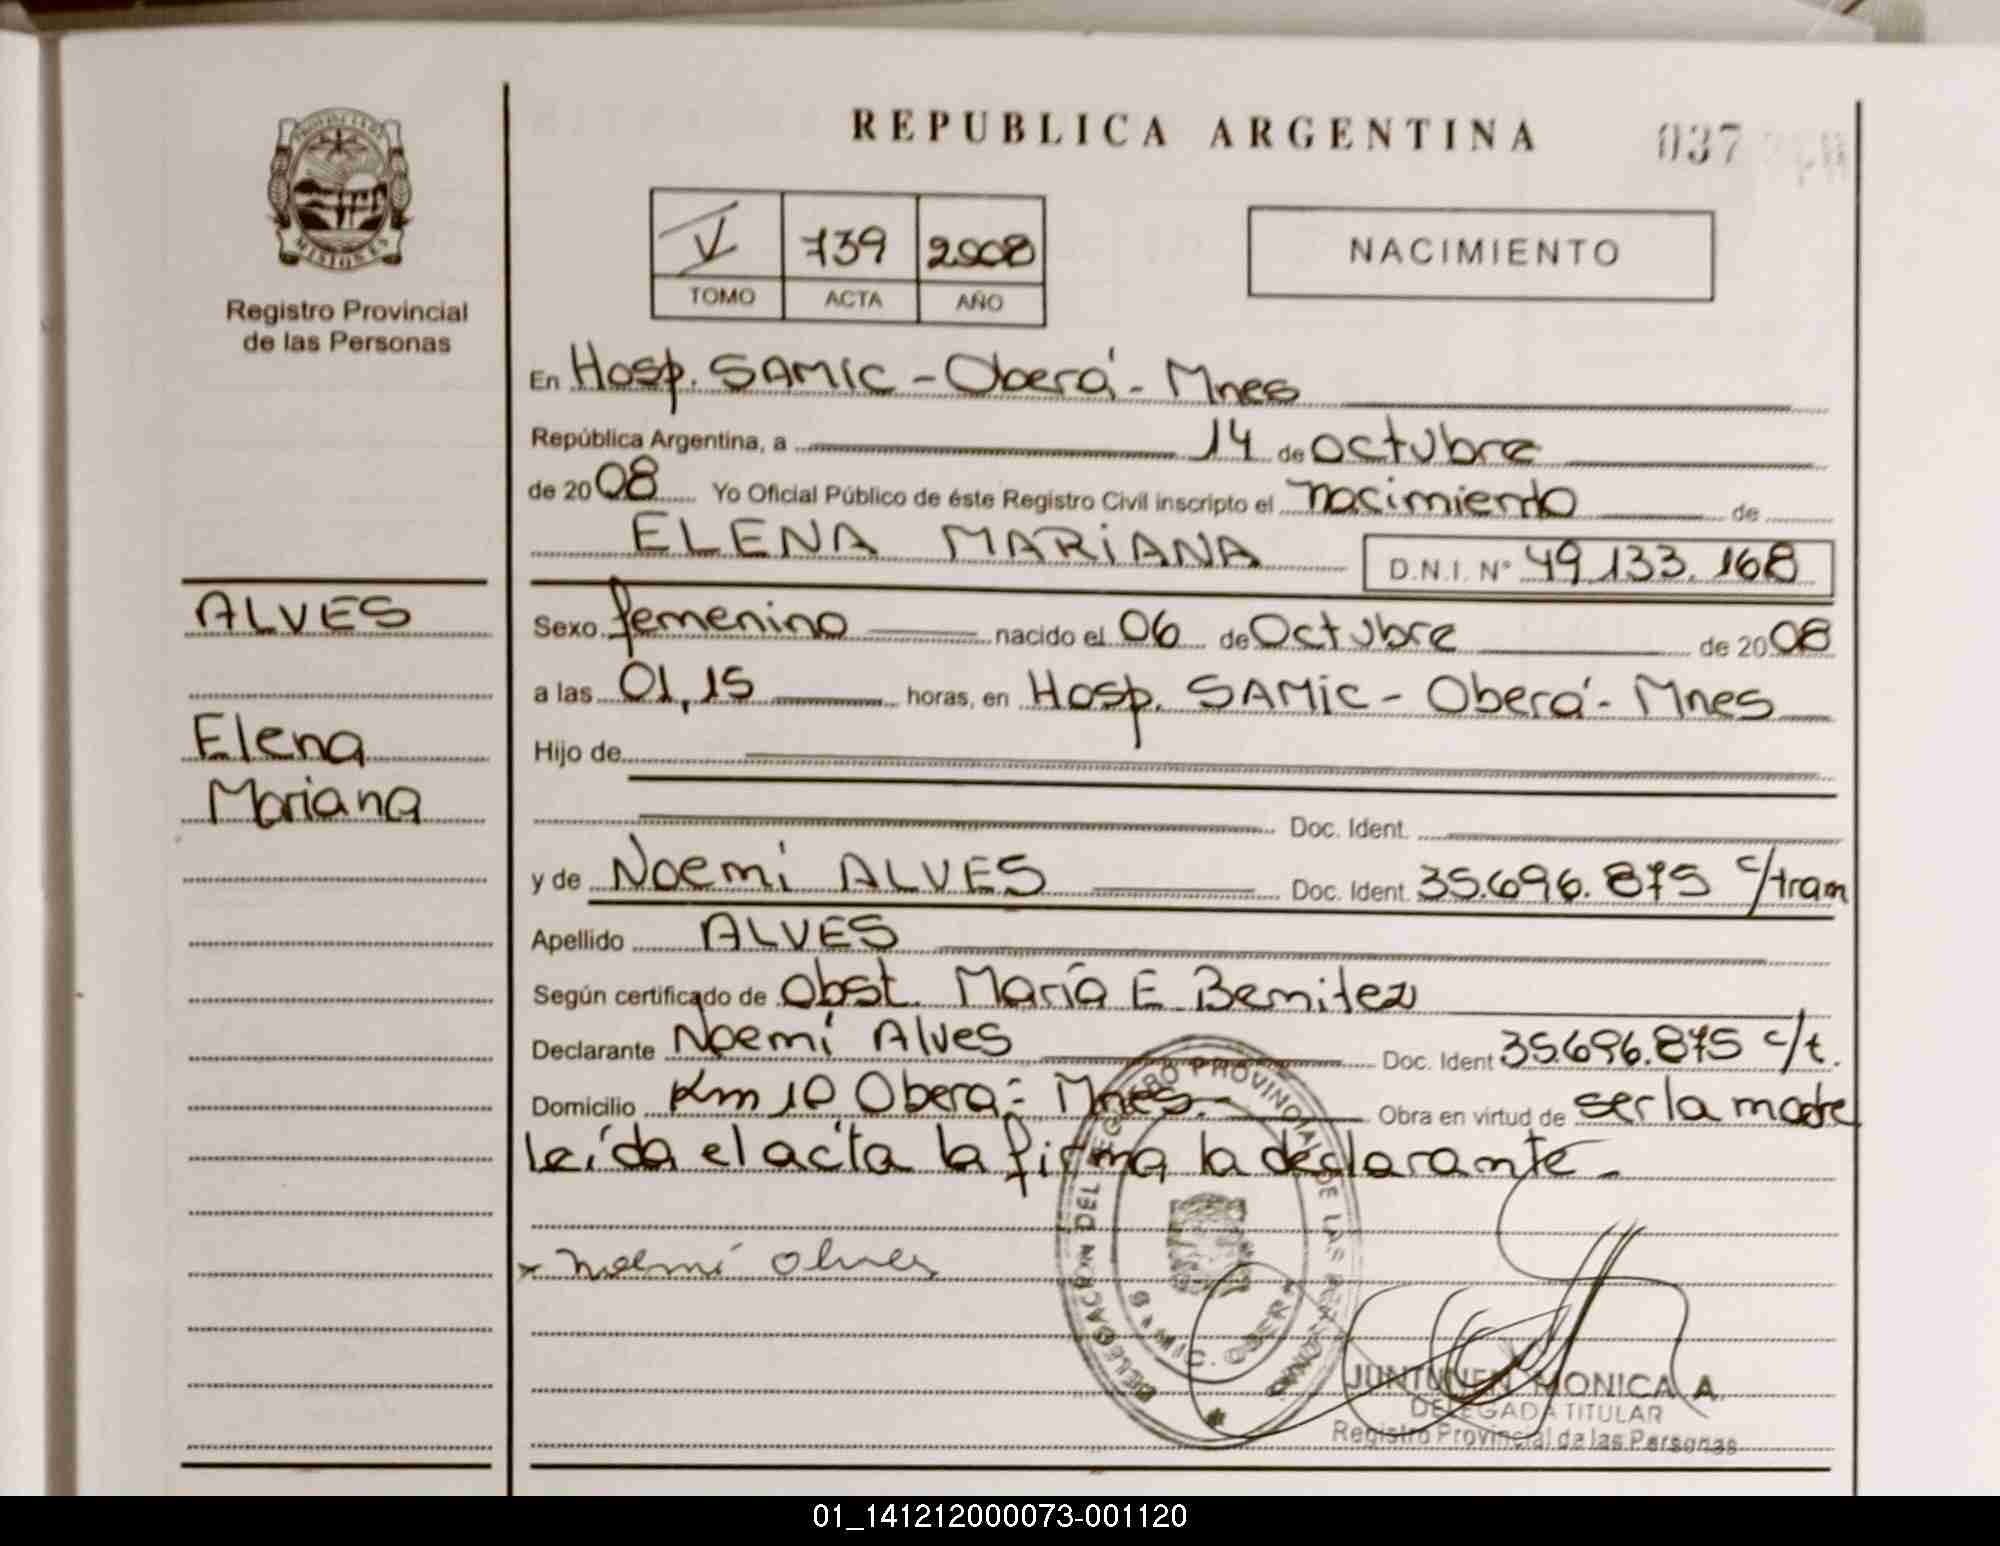 PROVINCIA DE
MISIONES
Registro Provincial
de las Personas
ALVES
Elena
Mariana
REPUBLICA ARGENTINA 037
V 739 2008
TOMO ACTA AÑO
NACIMIENTO
En Hosp. SAMIC - Oberá - Mnes
República Argentina, a 14 de octubre
de 2008 Yo Oficial Público de éste Registro Civil inscripto el nacimiento de
ELENA MARIANA D.N.I. Nº 49.133.168
Sexo femenino nacido el 06 de Octubre de 2008
a las 01,15 horas, en Hosp. SAMIC - Oberá - Mnes
Hijo de
Doc. Ident.
y de Noemí ALVES Doc. Ident. 35.696.875 c/tram
Apellido ALVES
Según certificado de Obst. María E Benitez
Declarante Noemí Alves Doc. Ident 35.696.875 c/t.
Domicilio Km 10 Oberá - Mnes. - Obra en virtud de ser la madre
leída el acta la firma la declarante -
x Noemí Alves
DELEGACION DEL REGISTRO PROVINCIAL DE LAS PERSONAS
JUNTUNEN MONICA A.
DELEGADA TITULAR
Registro Provincial de las Personas
01_141212000073-001120